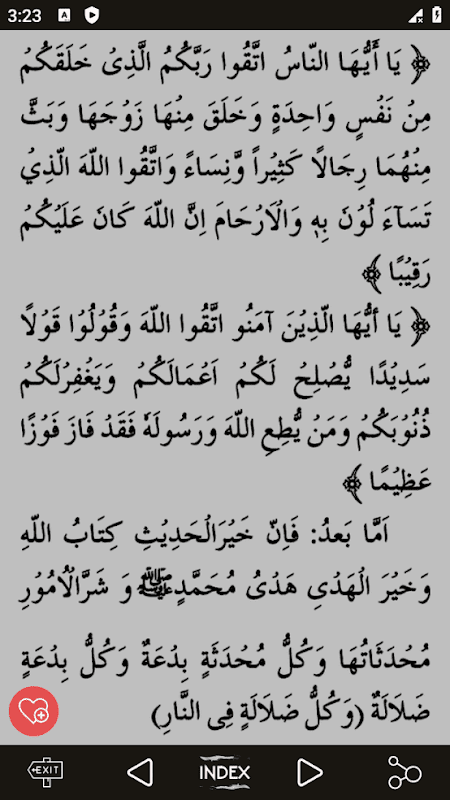 3:23
﴿ يَا أَيُّهَا النَّاسُ اتَّقُوا رَبَّكُمُ الَّذِیْ خَلَقَكُمْ
مِنْ نَفْسٍ وَاحِدَةٍ وَخَلَقَ مِنْهَا زَوْجَهَا وَبَثَّ
مِنْهُمَا رِجَالًا كَثِيْراً وَّنِسَاءً وَاتَّقُوا اللّٰهَ الَّذِيْ
تَسَآءَ لُوْنَ بِهٖ وَالْاَرْحَامَ اِنَّ اللّٰهَ كَانَ عَلَيْكُمْ
رَقِيْبًا ﴾
﴿ يَا أَيُّهَا الَّذِيْنَ آمَنُو اتَّقُوا اللّٰهَ وَقُوْلُوْا قَوْلًا
سَدِيْدًا يُّصْلِحْ لَكُمْ اَعْمَالَكُمْ وَيَغْفِرْلَكُمْ
ذُنُوْبَكُمْ وَمَنْ يُّطِعِ اللّٰهَ وَرَسُولَهٗ فَقَدْ فَازَ فَوْزًا
عَظِيْمًا ﴾
اَمَّا بَعدُ: فَاِنَّ خَيْرَالْحَدِيْثِ كِتَابُ اللّٰهِ
وَخَيْرَ الْهَدْیِ هَدْیُ مُحَمَّدٍ ﷺ وَ شَرَّالْاُمُوْرِ
مُحْدَثَاتُهَا وَكُلُّ مُحْدَثَةٍ بِدْعَةٌ وَكُلُّ بِدْعَةٍ
ضَلَالَةٌ (وَكُلُّ ضَلَالَةٍ فِی النَّارِ)
EXIT
INDEX